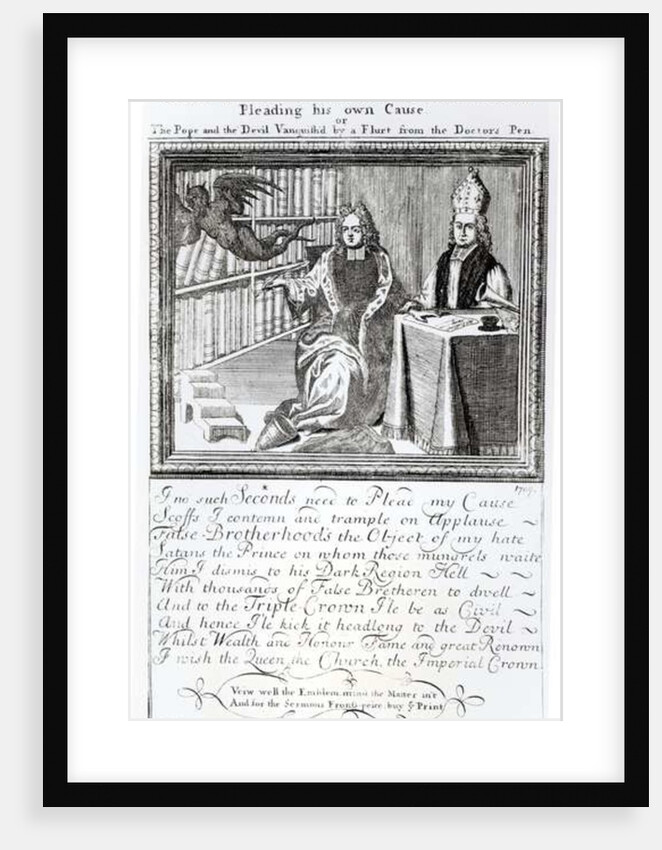 Pleading his own Cause
or
The Pope and the Devil Vanquish'd by a Flurt from the Doctors Pen
1709.
I no such Seconds need to Plead my Cause
Scoffs I contemn and trample on Applause
False-Brotherhoods the Object of my hate
Satans the Prince on whom those mungrels waite
Him I dismis to his Dark Region Hell
With thousands of False Bretheren to dwell
And to the Triple-Crown I'le be as Civil
And hence I'le kick it headlong to the Devil
Whilst Wealth and Honour Fame and great Renown
I wish the Queen, the Church, the Imperial Crown
Veiw well the Emblem, mind the Matter in't
And for the Sermons Frontis-peice, buy ye Print